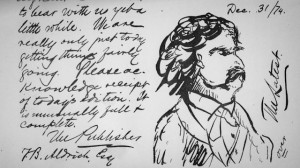 to bear with us yet a
little while. We are
really only just today
getting things fairly
going. Please ac-
knowledge receipt
of today's edition. It
is unusually full &
complete.
The Publisher
T.B. Aldrich Esq
Dec. 31/74.
The Latest.